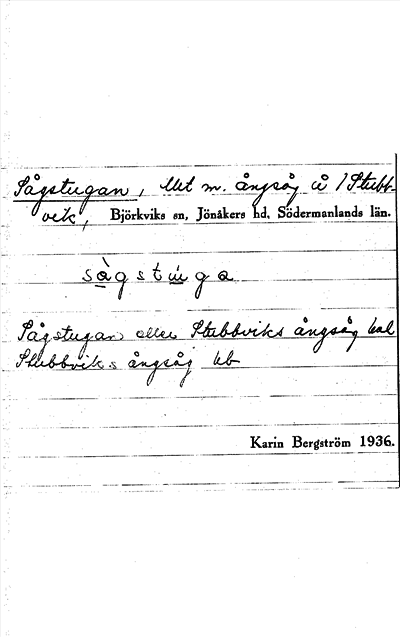 Sågstugan, lht m. ångsåg å 1 Stubb-
vik, Björkviks sn, Jönåkers hd, Södermanlands län.
sàgstúga
Sågstugan eller Stubbviks ångsåg kal
Stubbviks ångsåg hb
Karin Bergström 1936.